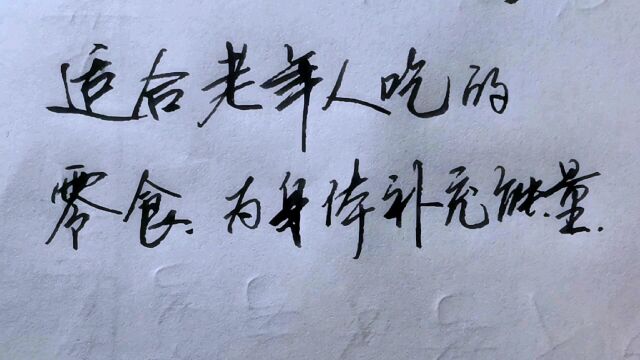 适合老年人吃的
零食.为身体补充能量.